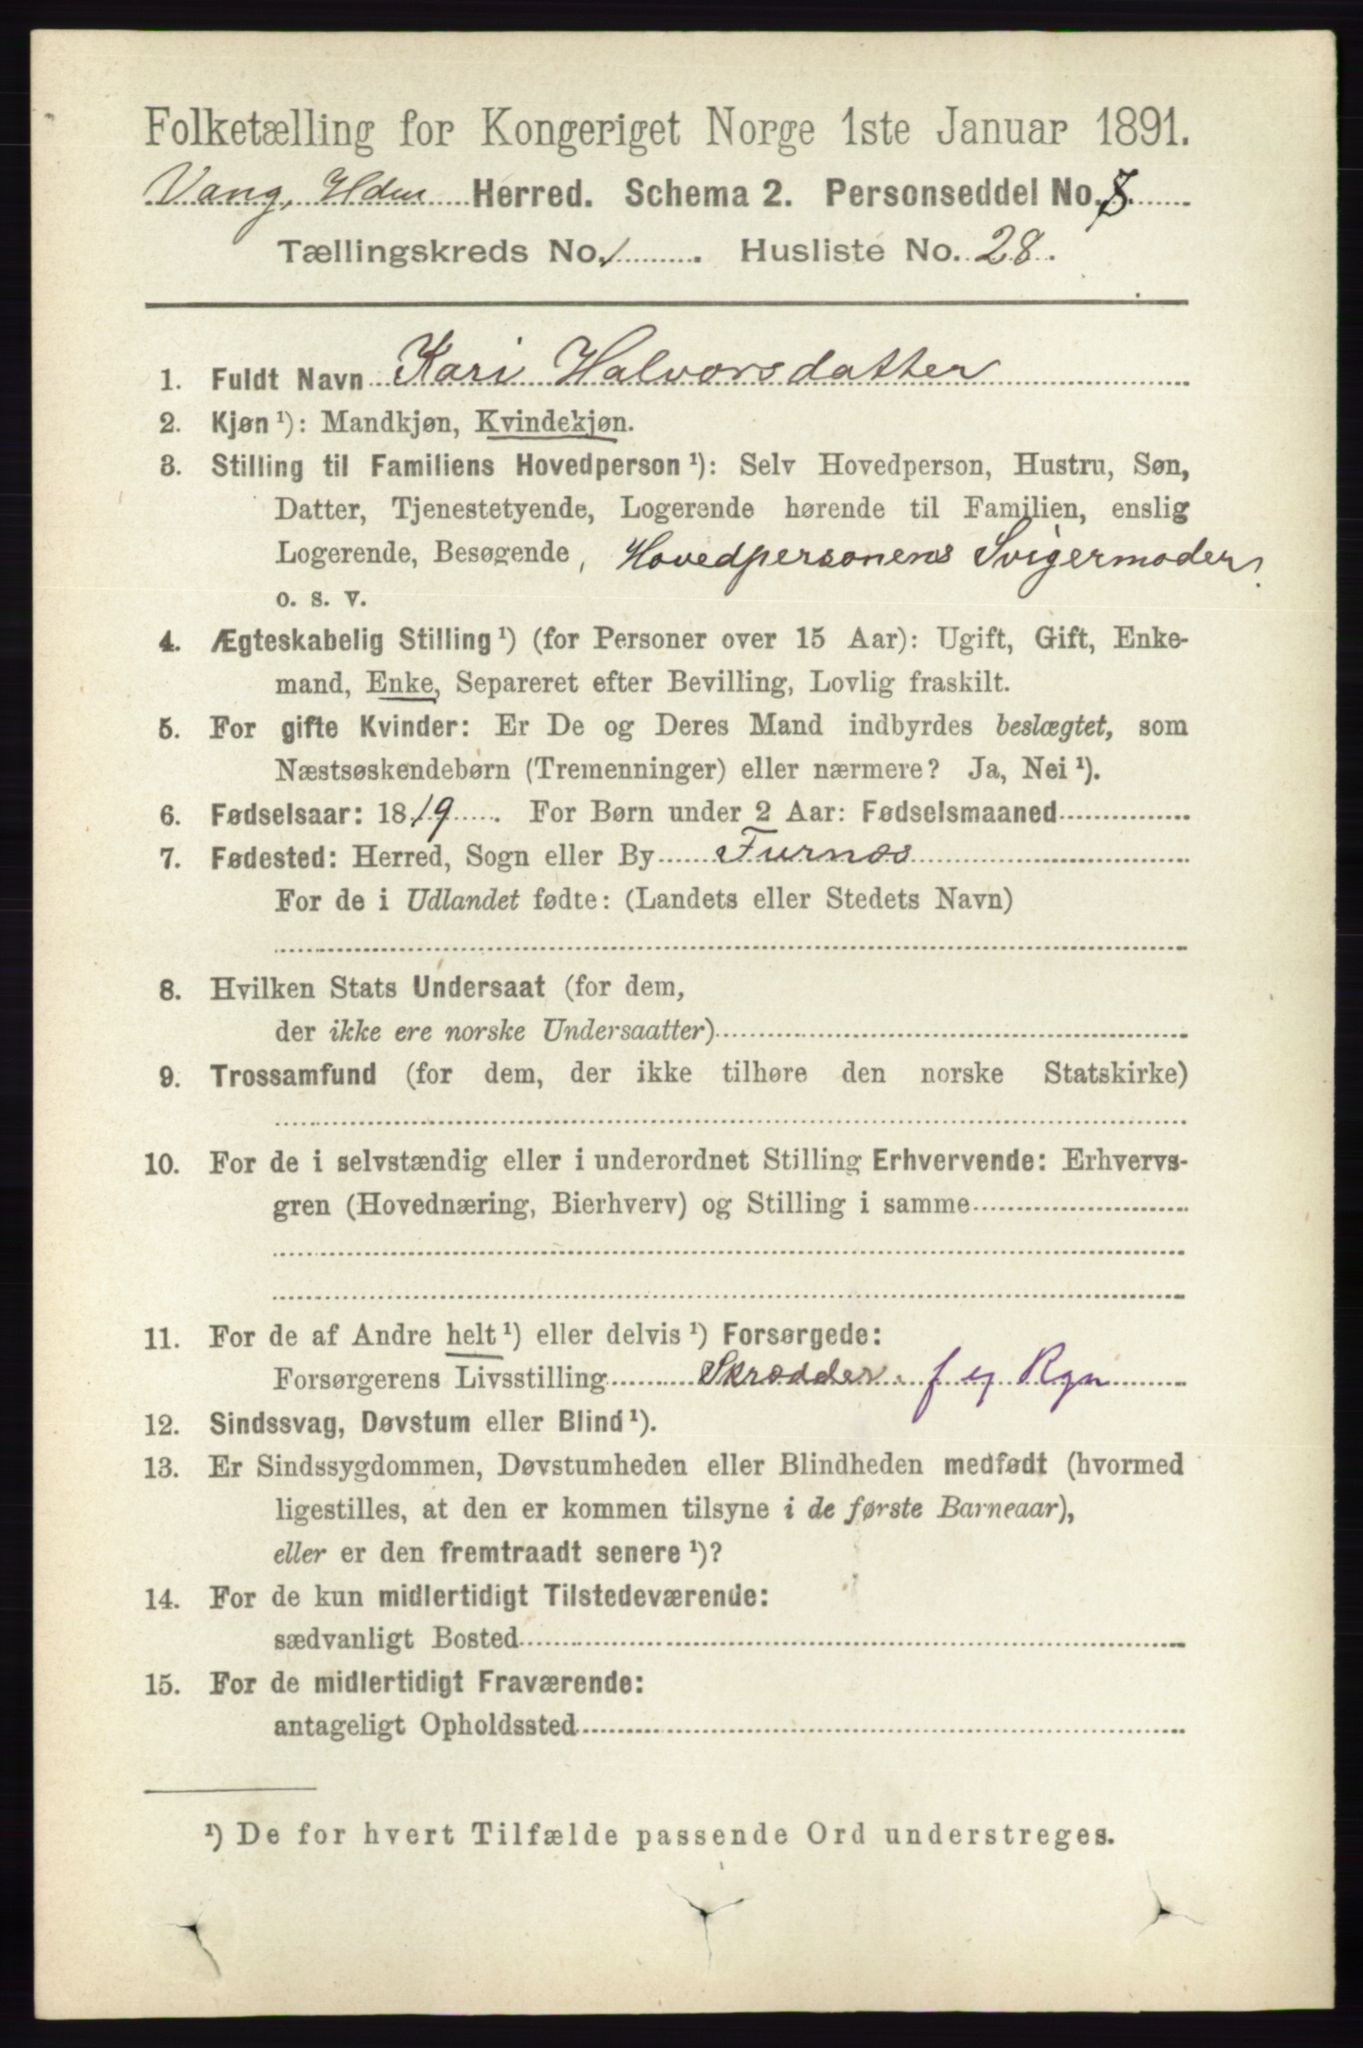 Folketælling for Kongeriget Norge 1ste Januar 1891.
Vang, Hdm Herred. Schema 2. Personseddel No. 8
Tællingskreds No. 1. Husliste No. 28.
1. Fuldt Navn Kari Halvorsdatter
2. Kjøn ¹): Mandkjøn, Kvindekjøn.
3. Stilling til Familiens Hovedperson ¹): Selv Hovedperson, Hustru, Søn,
Datter, Tjenestetyende, Logerende hørende til Familien, enslig
Logerende, Besøgende, Hovedpersonens Svigermoder.
o. s. v.
4. Ægteskabelig Stilling ¹) (for Personer over 15 Aar): Ugift, Gift, Enke-
mand, Enke, Separeret efter Bevilling, Lovlig fraskilt.
5. For gifte Kvinder: Er De og Deres Mand indbyrdes beslægtet, som
Næstsøskendebørn (Tremenninger) eller nærmere? Ja, Nei ¹).
6. Fødselsaar: 1819. For Børn under 2 Aar: Fødselsmaaned
7. Fødested: Herred, Sogn eller By Furnæs
For de i Udlandet fødte: (Landets eller Stedets Navn)
8. Hvilken Stats Undersaat (for dem,
der ikke ere norske Undersaatter)
9. Trossamfund (for dem, der ikke tilhøre den norske Statskirke)
10. For de i selvstændig eller i underordnet Stilling Erhvervende: Erhvervs-
gren (Hovednæring, Bierhverv) og Stilling i samme
11. For de af Andre helt ¹) eller delvis ¹) Forsørgede:
Forsørgerens Livsstilling Skrædder. f eg Rgn
12. Sindssvag, Døvstum eller Blind ¹).
13. Er Sindssygdommen, Døvstumheden eller Blindheden medfødt (hvormed
ligestilles, at den er kommen tilsyne i de første Barneaar),
eller er den fremtraadt senere ¹)?
14. For de kun midlertidigt Tilstedeværende:
sædvanligt Bosted
15. For de midlertidigt Fraværende:
antageligt Opholdssted
¹) De for hvert Tilfælde passende Ord understreges.